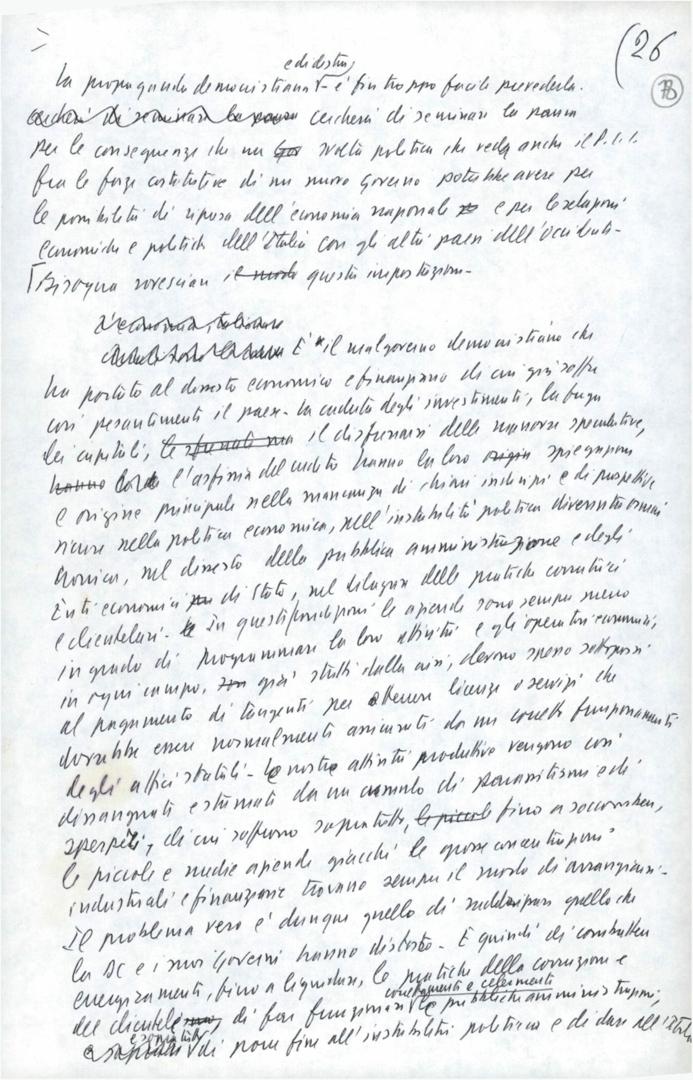 (26
B
e di destra,
La propaganda democristiana - è fin troppo facile prevederlo.
cercherà di seminare la paura cercherà di seminare la paura
per le conseguenze che una svolta politica che veda anche il P.C.I.
fra le forze costitutive di un nuovo governo potrebbe avere per
le possibilità di ripresa dell'economia nazionale e per le relazioni
economiche e politiche dell'Italia con gli altri paesi dell'occidente.
Bisogna rovesciare il modo questa impostazione.
L'economia italiana
È il malgoverno democristiano che
ha portato al dissesto economico e finanziario di cui già soffre
così pesantemente il paese. La caduta degli investimenti, la fuga
dei capitali, il disfrenarsi delle manovre speculative,
hanno loro l'asfissia del credito hanno la loro origin spiegazione
e origine principale nella mancanza di chiari indirizzi e di prospettive
sicure nella politica economica, nell'instabilità politica divenuta ormai
cronica, nel dissesto della pubblica amministrazione e degli
Enti economici di Stato, nel dilagare delle pratiche corruttrici
e clientelari. In questi condizioni le aziende sono sempre meno
in grado di programmare la loro attività e gli operatori economici,
in ogni campo, già stretti dalla crisi, devono spesso sottoporsi
al pagamento di tangenti per ottenere licenze o servizi che
dovrebbe essere normalmente assicurati da un corretto funzionamento
degli uffici statali. Le nostre attività produttive vengono così
dissanguate e stremate da un cumulo di parassitismi e di
sperperi, di cui soffrono sopratutto, le piccole fino a soccombere,
le piccole e medie aziende giacché le grosse concentrazioni
industriali e finanziarie trovano sempre il modo di arrangiarsi.
Il problema vero è dunque quello di raddrizzare quello che
la DC e i suoi governi hanno distorto. È quindi di combattere
energicamente, fino a liquidare, le pratiche della corruzione e
correttamente e celermente
del clientel di far funzionare le pubbliche amministrazioni,
e sopratutto
di porre fine all'instabilità politica e di dare all'Italia